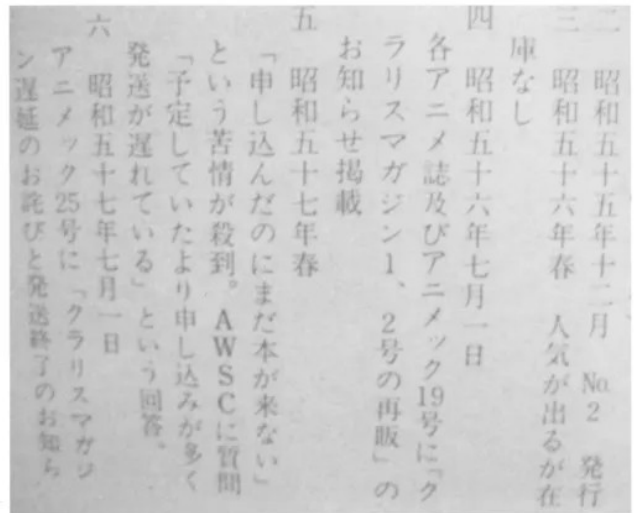 二　昭和五十五年十二月　No.2　発行
三　昭和五十六年春　人気が出るが在
庫なし
四　昭和五十六年七月一日
各アニメ誌及びアニメック19号に「ク
ラリスマガジン1、2号の再販」の
お知らせ掲載
五　昭和五十七年春
「申し込んだのにまだ本が来ない」
という苦情が殺到。AWSCに質問
「予定していたより申し込みが多く
発送が遅れている」という回答。
六　昭和五十七年七月一日
アニメック25号に「クラリスマガジ
ン遅延のお詫びと発送終了のお知ら